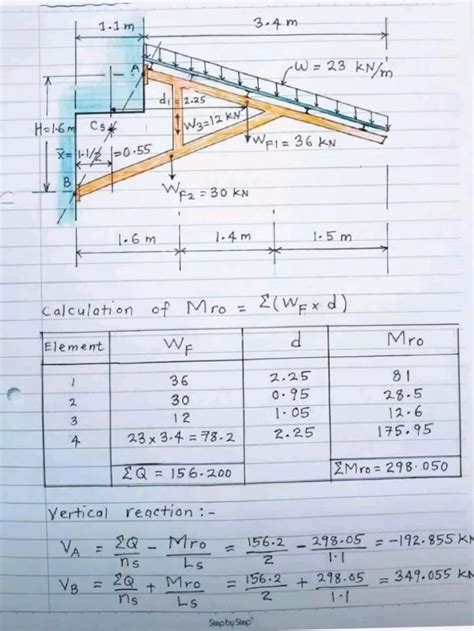 1.1 m 3.4 m
W = 23 kN/m
A
d1 = 2.25
H=1.6m Cs W3=12 kN
WF1 = 36 KN
x̄ = 1.1/2 = 0.55
B
WF2 = 30 KN
1.6 m 1.4 m 1.5 m
Calculation of Mro = Σ(WF x d)
Element WF d Mro
1 36 2.25 81
2 30 0.95 28.5
3 12 1.05 12.6
4 23 x 3.4 = 78.2 2.25 175.95
ΣQ = 156.200 ΣMro = 298.050
Vertical reaction :-
VA = ΣQ/ns - Mro/Ls = 156.2/2 - 298.05/1.1 = -192.855 KN
VB = ΣQ/ns + Mro/Ls = 156.2/2 + 298.05/1.1 = 349.055 KN
Step by Step